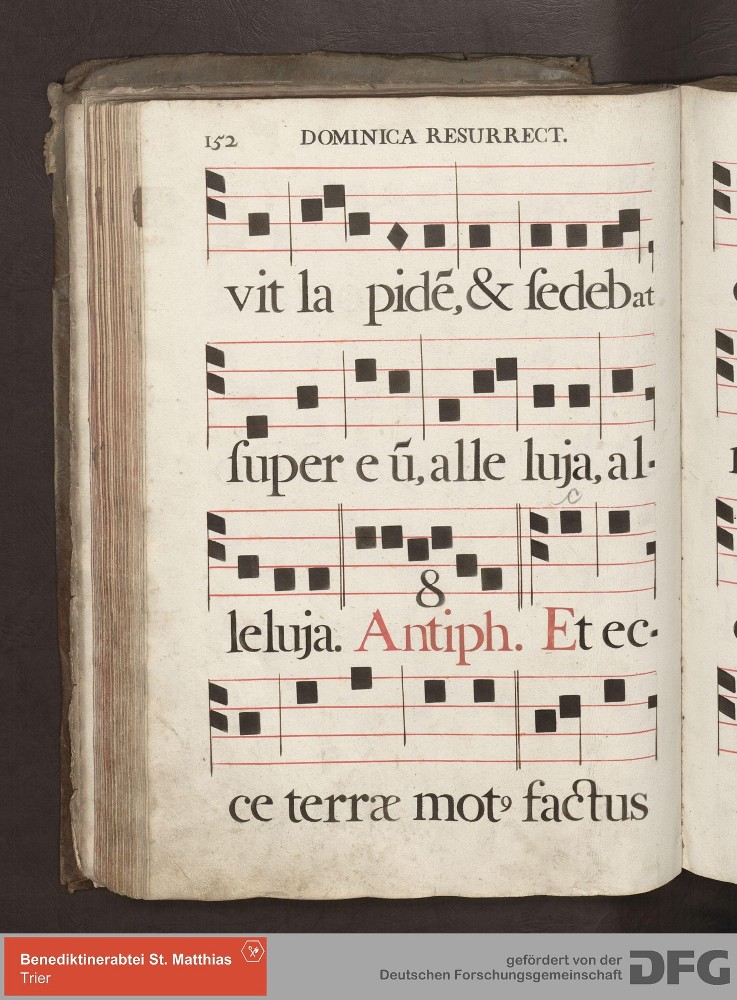 152 DOMINICA RESURRECT.
vit la pidē, & ſedebat
ſuper e ū, alle luja, al-
c
8
leluja. Antiph. Et ec-
ce terræ motꝰ factus
Benediktinerabtei St. Matthias
Trier
gefördert von der
Deutschen Forschungsgemeinschaft
DFG